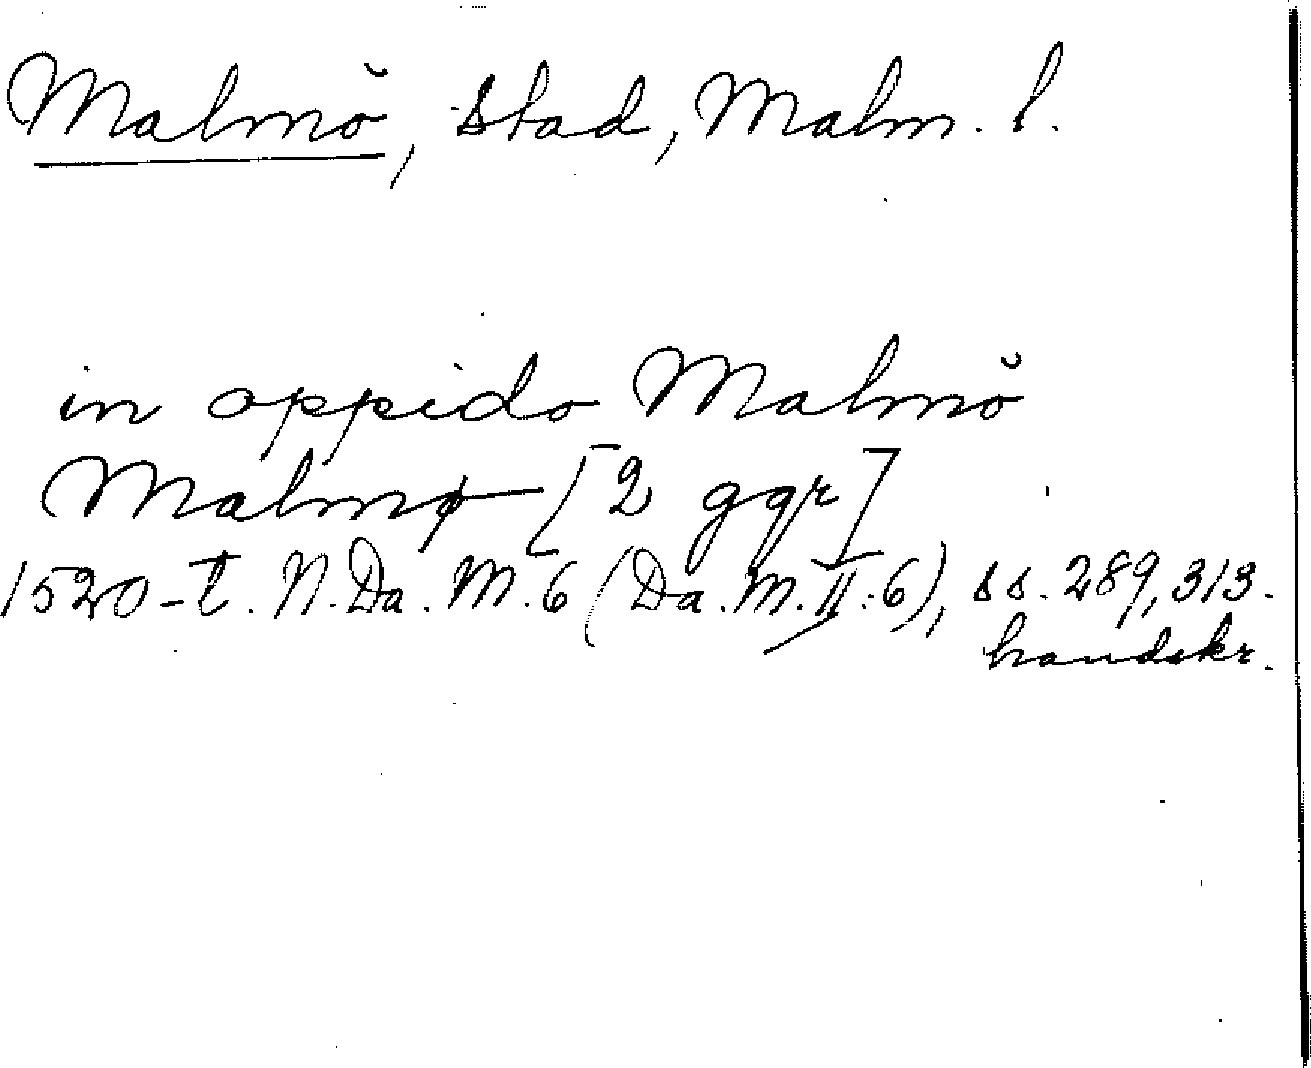 Malmö, Stad, Malm. l.
in oppido Malmö
Malmø [2 ggr]
1520-t. N. Da. M. 6 (Da. M. II. 6), ss. 289, 313.
handskr.